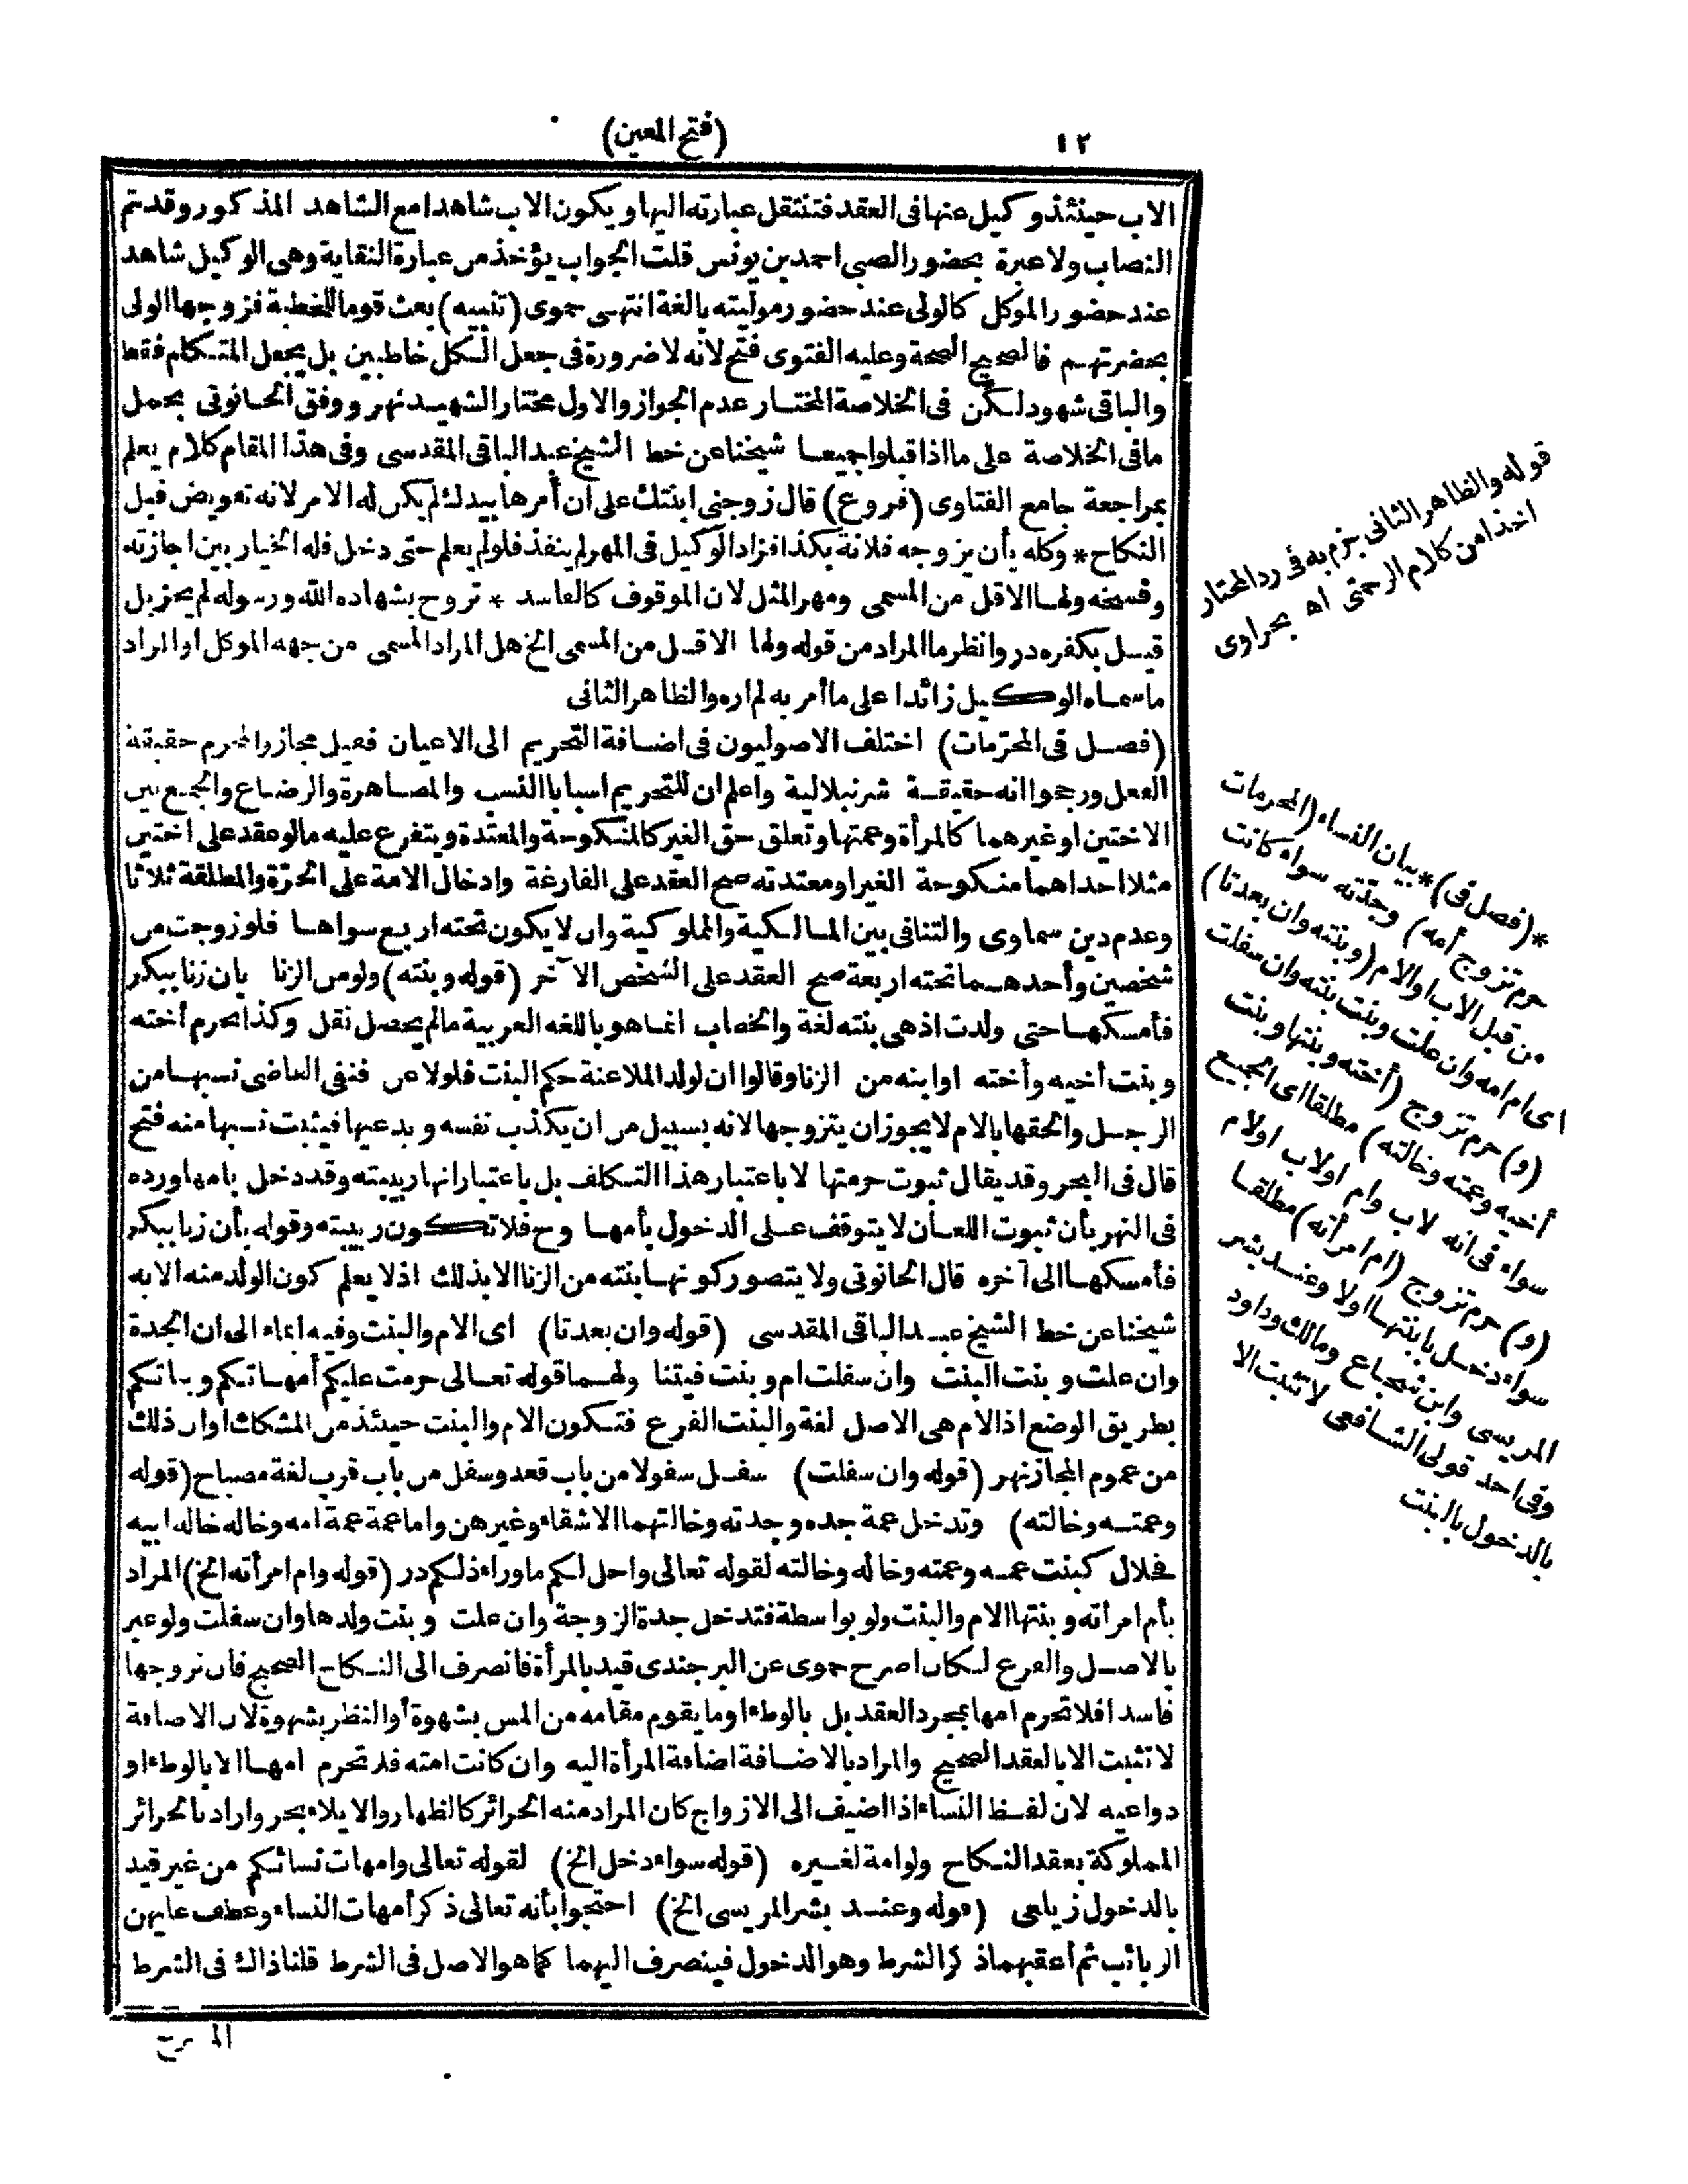 ١٢
(فتح المعين)
الاب حينئذ وكيل عنها فى العقد فتنتقل عبارته اليها ويكون الاب شاهدا مع الشاهد المذكور وقد تم
النصاب ولا عبرة بحضور الصبى احمد بن يونس قلت الجواب يؤخذ من عبارة النقاية وهى الوكيل شاهد
عند حضور الموكل كالولى عند حضور موليته بالغة انتهى حموى (تنبيه) بعث قوما للخطبة فزوجها الولى
بحضرتهم فالصحيح الصحة وعليه الفتوى فتح لانه لا ضرورة فى جعل الكل خاطبين بل يجعل المتكلم فقط
والباقى شهود لكن فى الخلاصة المختار عدم الجواز والاول مختار الشهيد نهر ووفق الحانوتى بحمل
ما فى الخلاصة على ما اذا قبلوا جميعا شيخنا عن خط الشيخ عبد الباقى المقدسى وفى هذا المقام كلام يعلم
بمراجعة جامع الفتاوى (فروع) قال زوجنى ابنتك على ان أمرها بيدك لم يكن له الامر لانه تفويض قبل
النكاح * وكله بأن يزوجه فلانة بكذا فزاد الوكيل فى المهر لم ينفذ فلو لم يعلم حتى دخل فله الخيار بين اجازته
وفسخه ولها الاقل من المسمى ومهر المثل لان الموقوف كالفاسد * تزوج بشهادة الله ورسوله لم يجز بل
قيل يكفر در وانظر ما المراد من قوله ولها الاقل من المسمى الخ هل المراد المسمى من جهة الموكل او المراد
ما سماه الوكيل زائدا على ما أمر به لم اره والظاهر الثانى
(فصل فى المحرمات) اختلف الاصوليون فى اضافة التحريم الى الاعيان فقيل مجاز والمحرم حقيقة
الفعل ورجحوا انه حقيقة شرنبلالية واعلم ان للتحريم اسبابا النسب والمصاهرة والرضاع والجمع بين
الاختين او غيرهما كالمرأة وعمتها وتعلق حق الغير كالمنكوحة والمعتدة ويتفرع عليه ما لو عقد على اختين
مثلا احداهما منكوحة الغير او معتدته صح العقد على الفارغة وادخال الامة على الحرة والمطلقة ثلاثا
وعدم دين سماوى والتنافى بين المالكية والمملوكية وان لا يكون تحته اربع سواها فلو زوجت من
شخصين وأحدهما تحته اربعة صح العقد على الشخص الآخر (قوله وبنته) ولو من الزنا بان زنا ببكر
فأمسكها حتى ولدت اذ هى بنته لغة والخطاب انما هو باللغة العربية ما لم يحصل نقل وكذا تحرم أخته
وبنت أخيه وأخته او ابنه من الزنا وقالوا ان لولد الملاعنة حكم البنت فلو لاعن فنفى القاضى نسبها من
الرجل والحقها بالام لا يجوز ان يتزوجها لانه بسبيل من ان يكذب نفسه ويدعيها فيثبت نسبها منه فتح
قال فى البحر وقد يقال ثبوت حرمتها لا باعتبار هذا التكلف بل باعتبار انها ربيبته وقد دخل بامها ورده
فى النهر بأن ثبوت اللعان لا يتوقف على الدخول بأمها وح فلا تكون ربيبته وقوله بأن زنا ببكر
فأمسكها الى آخره قال الحانوتى ولا يتصور كونها بنته من الزنا الا بذلك اذ لا يعلم كون الولد منه الا به
شيخنا عن خط الشيخ عبد الباقى المقدسى (قوله وان بعدتا) اى الام والبنت وفيه ايماء الى ان الجدة
وان علت وبنت البنت وان سفلت ام وبنت فيتنا ولهما قوله تعالى حرمت عليكم أمهاتكم وبناتكم
بطريق الوضع اذ الام هى الاصل لغة والبنت الفرع فتكون الام والبنت حينئذ من المشكك او ان ذلك
من عموم المجاز نهر (قوله وان سفلت) سفل سفولا من باب قعد وسفل من باب قرب لغة مصباح (قوله
وعمته وخالته) وتدخل عمة جده وجدته وخالتهما الاشقاء وغيرهن واما عمة عمة امه وخالة خالة ابيه
فحلال كبنت عمه وعمته وخاله وخالته لقوله تعالى واحل لكم ما وراء ذلكم در (قوله وام امرأته الخ) المراد
بأم امرأته وبنتها الام والبنت ولو بواسطة فتدخل جدة الزوجة وان علت وبنت ولدها وان سفلت ولو عبر
بالاصل والفرع لكان اصرح حموى عن البرجندى قيد بالمرأة فانصرف الى النكاح الصحيح فان تزوجها
فاسدا فلا تحرم امها بمجرد العقد بل بالوطء او ما يقوم مقامه من المس بشهوة أو النظر بشهوة لان الاضافة
لا تثبت الا بالعقد الصحيح والمراد بالاضافة اضافة المرأة اليه وان كانت امته فلا تحرم امها الا بالوطء او
دواعيه لان لفظ النساء اذا اضيف الى الازواج كان المراد منه الحرائر كالظهار والايلاء بحر واراد بالحرائر
المملوكة بعقد النكاح ولو امة لغيره (قوله سواء دخل الخ) لقوله تعالى وامهات نسائكم من غير قيد
بالدخول زيلعى (قوله وعند بشر المريسى الخ) احتجوا بأنه تعالى ذكر أمهات النساء وعطف عليهن
الربائب ثم أعقبهما ذكر الشرط وهو الدخول فينصرف اليهما كما هو الاصل فى الشرط قلنا ذاك فى الشرط
قوله والظاهر الثانى جزم به فى رد المحتار
اخذا من كلام الرحمتى اه بحراوى
*(فصل فى)* بيان النساء (المحرمات
حرم تزوج أمه) وجدته سواء كانت
من قبل الاب او الام (وبنته وان بعدتا)
اى ام امه وان علت وبنت بنته وان سفلت
(و) حرم تزوج (أخته وبنتها وبنت
أخيه وعمته وخالته) مطلقا اى الجميع
سواء فى انه لاب وام او لاب او لام
(و) حرم تزوج (ام امرأته) مطلقا
سواء دخل بابنتها اولا وعند بشر
المريسى وابن شجاع ومالك وداود
وفى احد قولى الشافعى لا تثبت الا
بالدخول بالبنت